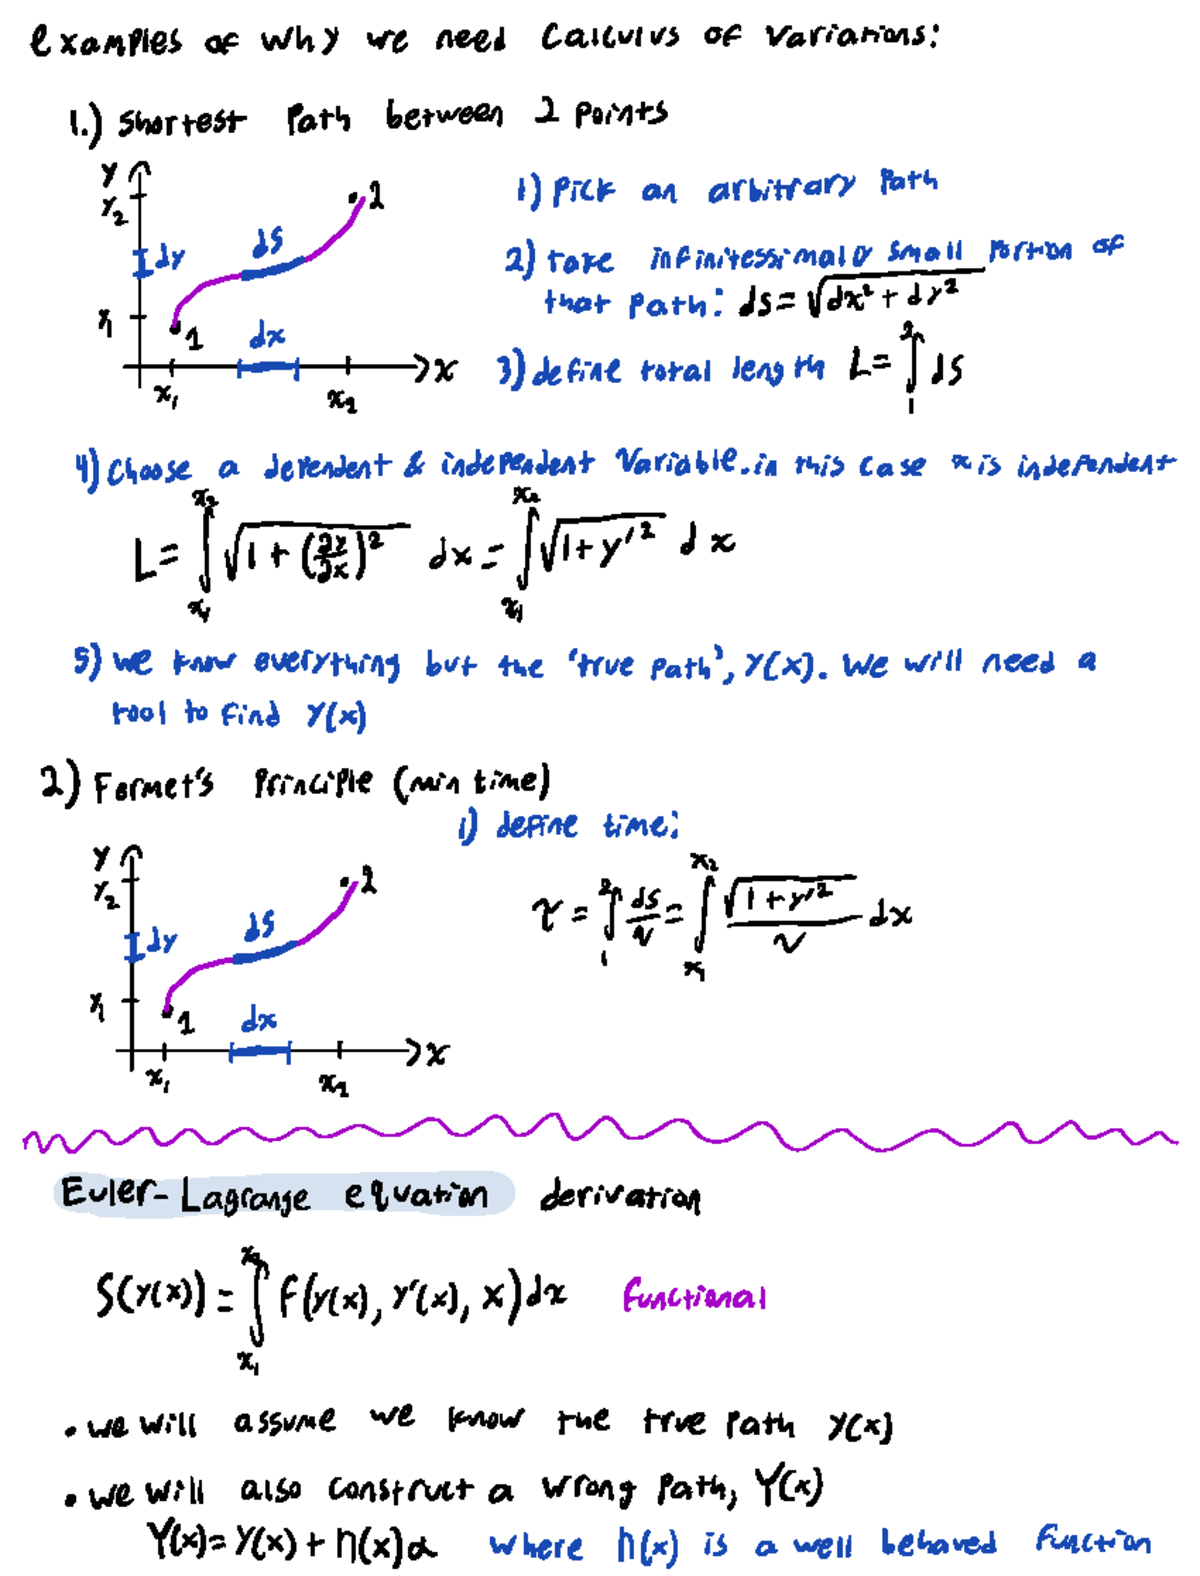 examples of why we need Calculus of Variations:
1.) Shortest Path between 2 Points
y
y₂
2
1) Pick an arbitrary Path
dy
ds
2) take infinitessimaly small Portion of
that Path: ds = √(dx² + dy²)
y₁
1
dx
x
x₁
x₂
3) define total length L = ∫₁² ds
4) Choose a dependent & independent Variable. in this case x is independent
L = ∫_{x₁}^{x₂} √(1 + (∂y/∂x)²) dx = ∫_{x₁}^{x₂} √(1 + y'²) dx
5) we know everything but the 'true path', y(x). We will need a
tool to find y(x)
2) Fermet's Principle (min time)
1) define time:
y
y₂
2
dy
ds
τ = ∫₁² ds/v = ∫_{x₁}^{x₂} √(1 + y'²)/v dx
y₁
1
dx
x
x₁
x₂
Euler-Lagrange equation derivation
S(y(x)) = ∫_{x₁}^{x₂} f(y(x), y'(x), x) dx functional
• we will assume we know the true path y(x)
• we will also construct a wrong path, Y(x)
Y(x) = y(x) + η(x)α where η(x) is a well behaved function